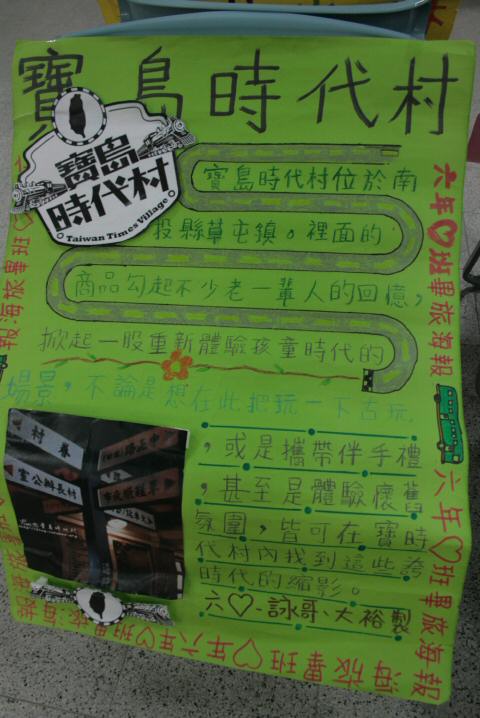 寶島時代村
寶島
時代村
Taiwan Times Village
寶島時代村位於南
投縣草屯鎮。裡面的
商品勾起不少老一輩人的回憶，
掀起一股重新體驗孩童時代的
場景，不論是想在此把玩一下古玩
，或是攜帶伴手禮
，甚至是體驗懷舊
氛圍，皆可在寶時
代村內找到這些跨
時代的縮影。
六♡-詠哥、大裕製
六年♡班畢旅海報
六年♡班畢旅海報
海旅畢班♡年六
六年♡班畢旅海報
班畢旅海報
村長辦公室